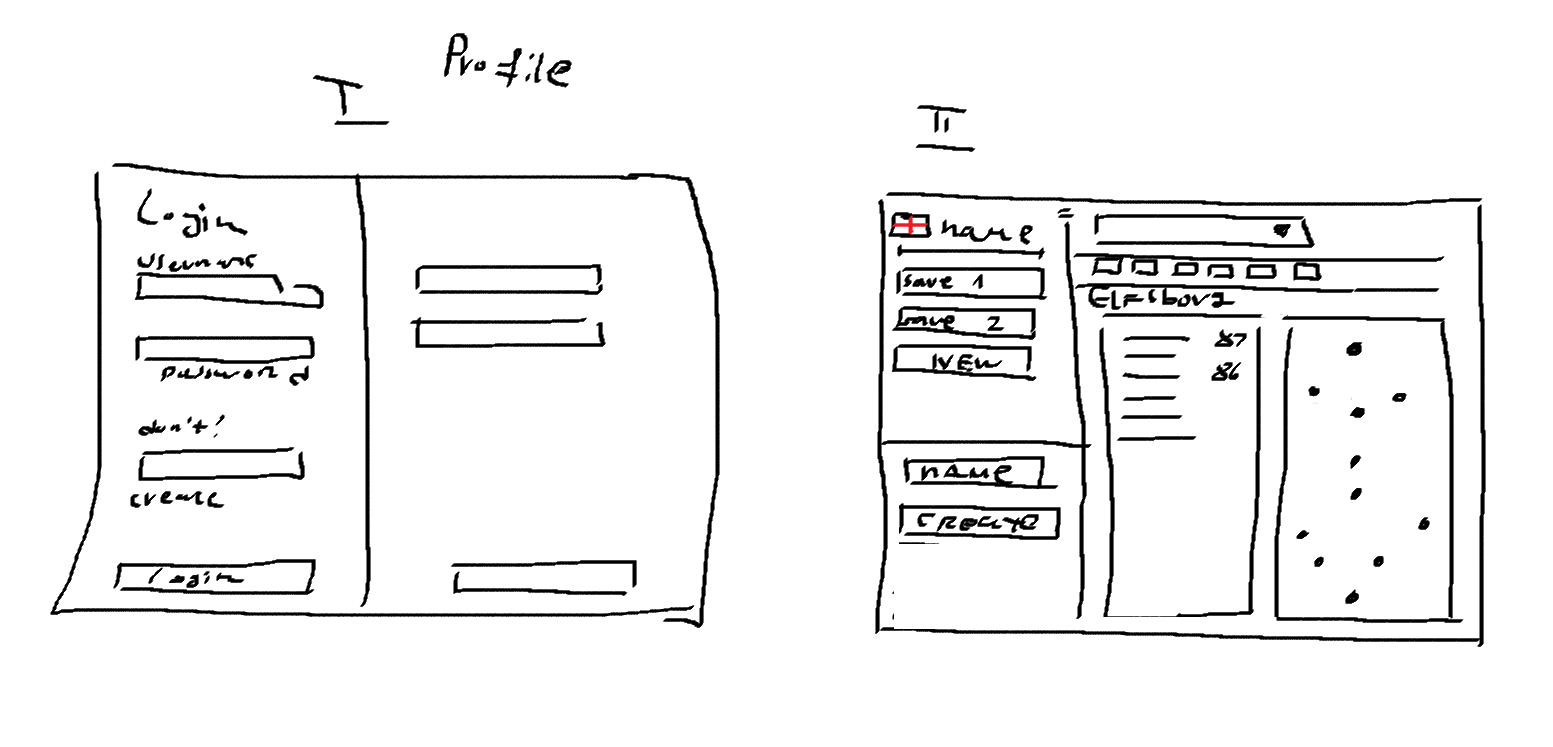 Profile
I
Login
username
password
don't!
create
Login
II
name
save 1
save 2
NEW
name
CREATE
Elfsborg
87
86